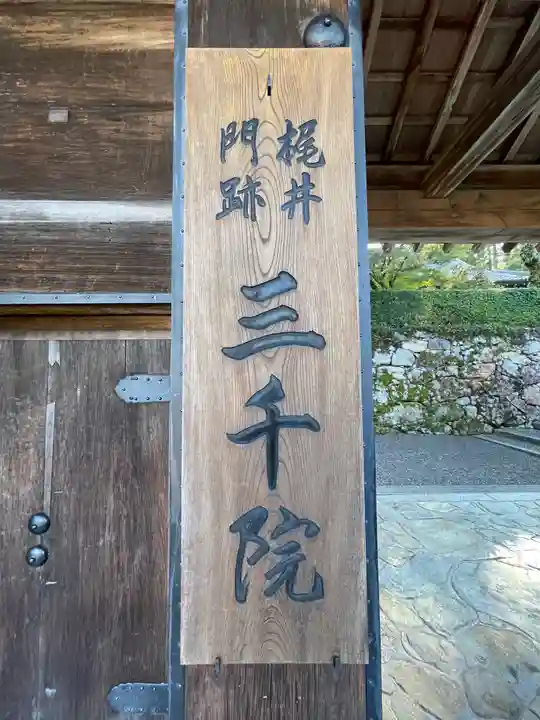 梶井
門跡
三千院